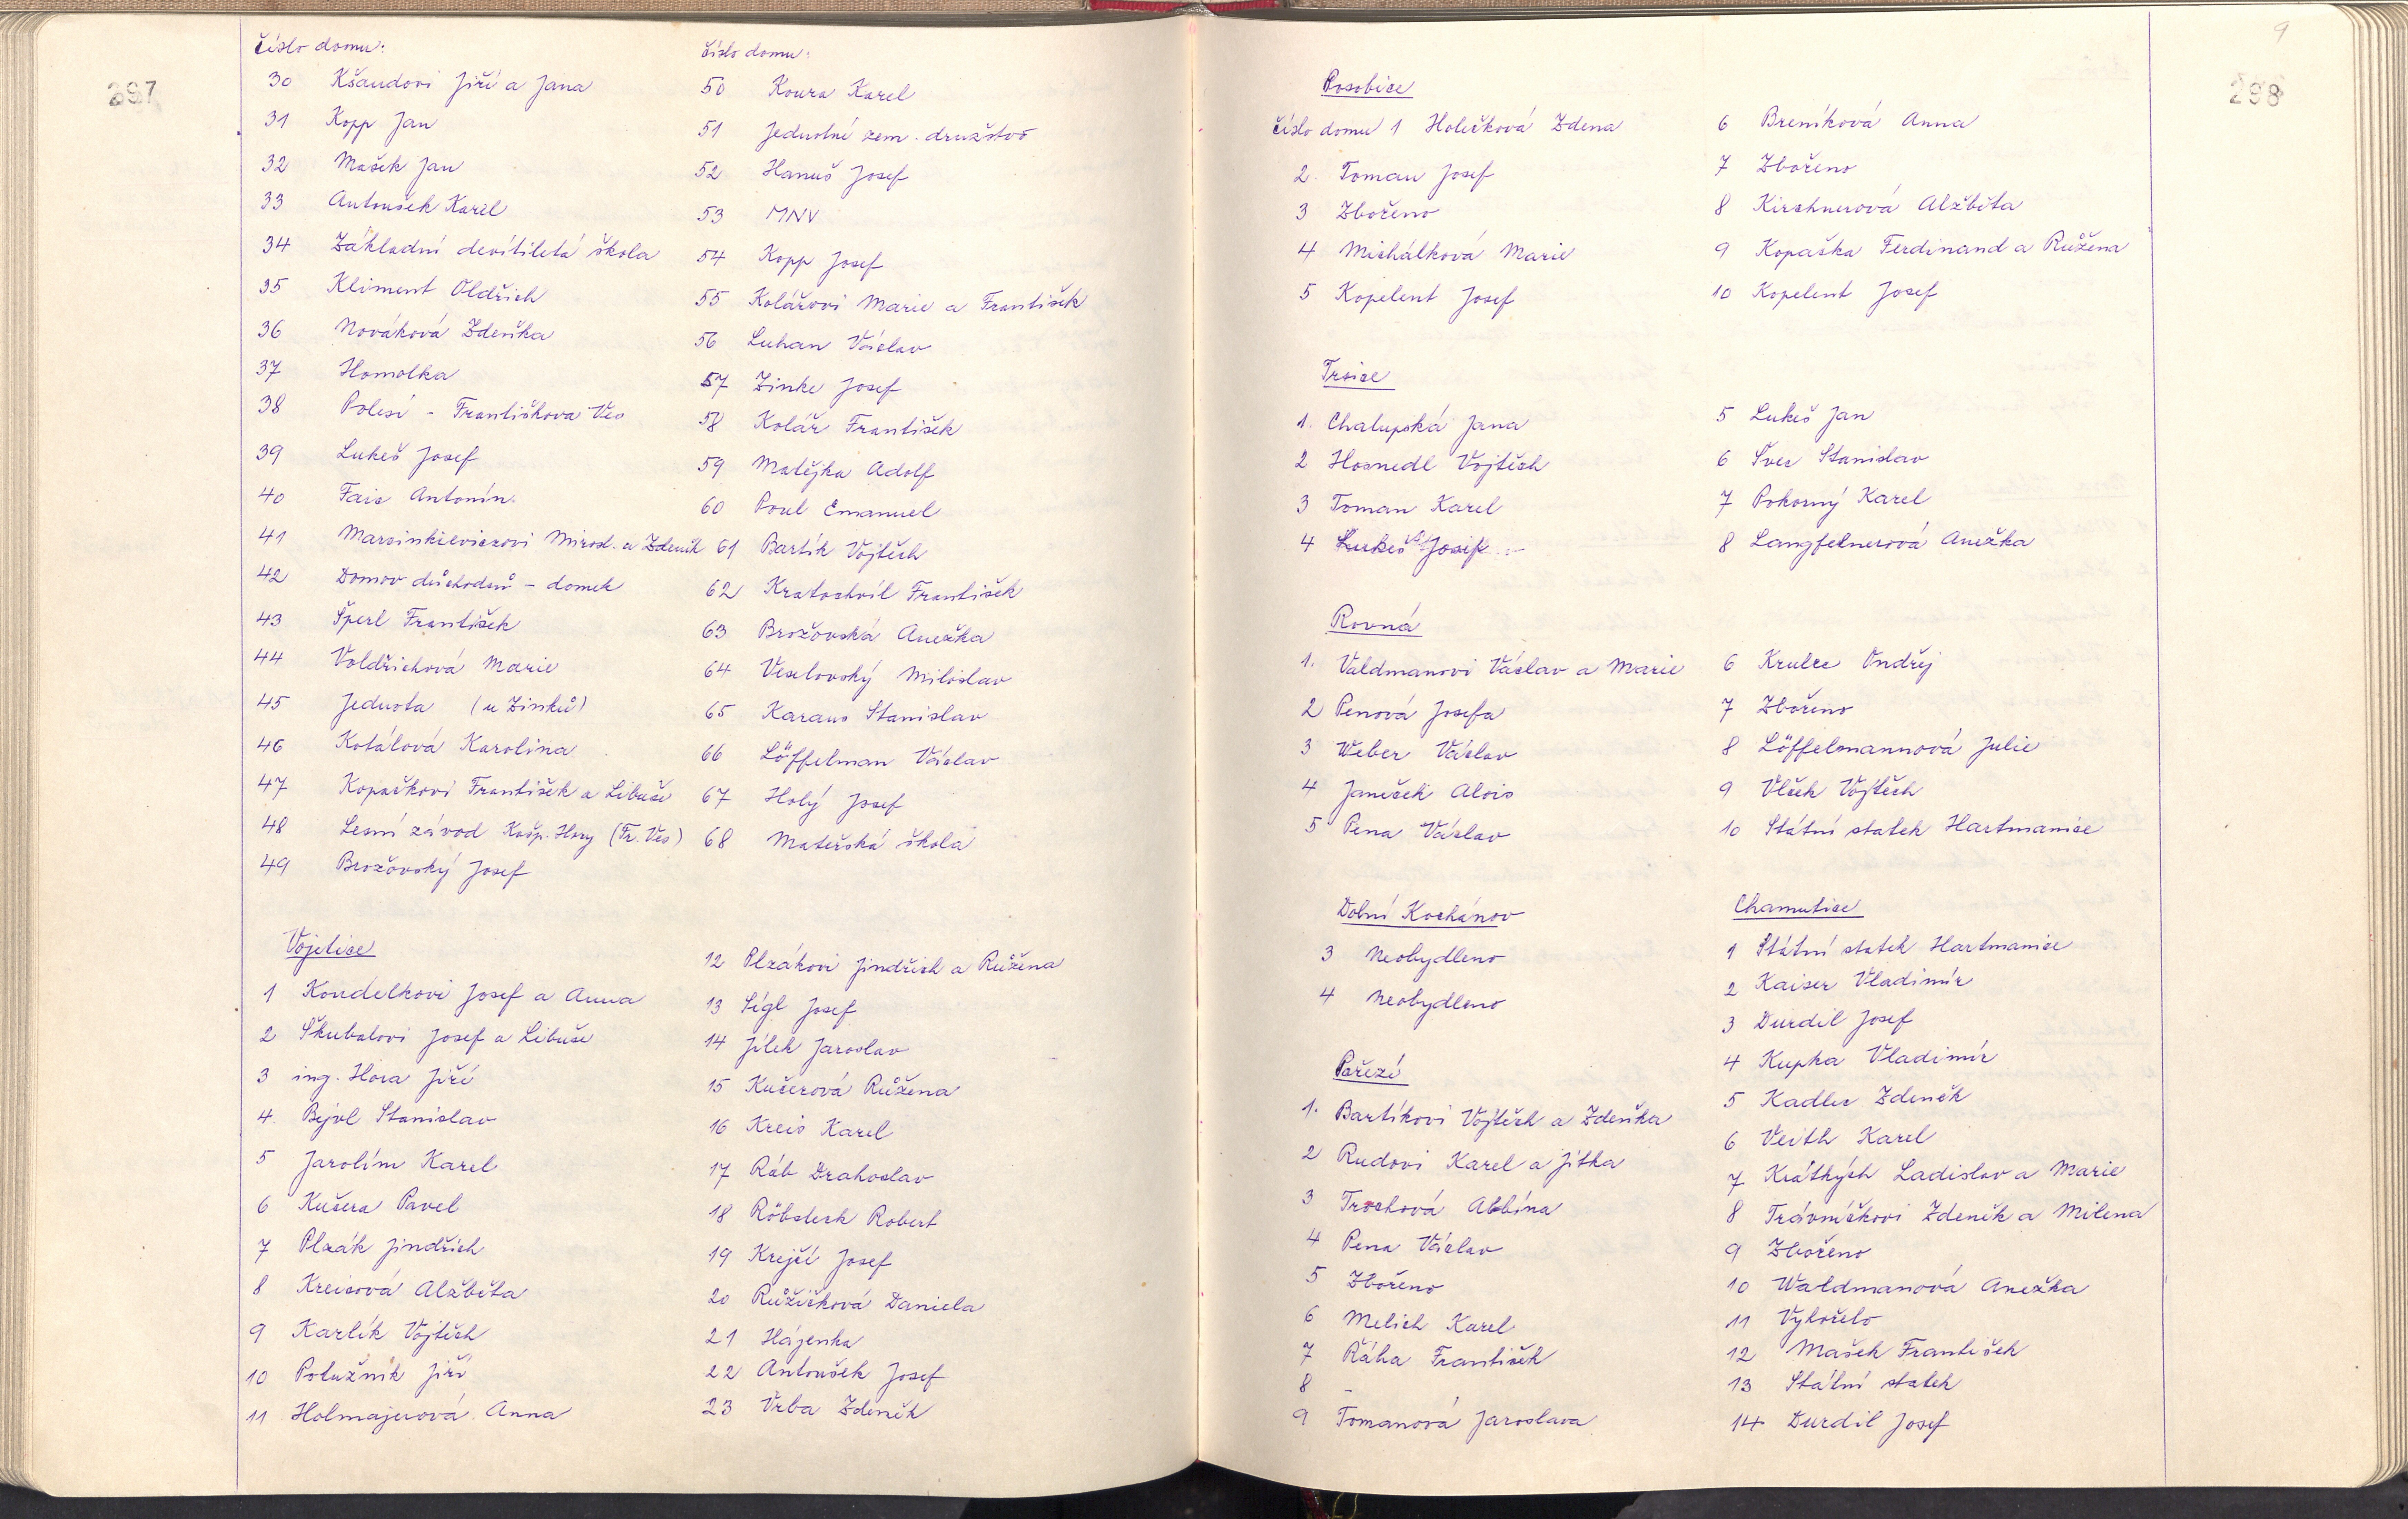 297
číslo domu:
30 Kšandovi Jiří a Jana
31 Kopp Jan
32 Mašek Jan
33 Antoušek Karel
34 Základní devítiletá škola
35 Kliment Oldřich
36 Nováková Zdeňka
37 Homolka
38 Polesí - Františkova Ves
39 Lukeš Josef
40 Fais Antonín.
41 Marcinkieviczovi Mirosl. a Zdeněk
42 Domov důchodců - domek
43 Šperl František
44 Voldřichová Marie
45 Jednota (u Zinků)
46 Kotálová Karolina
47 Kopačkovi František a Libuše
48 Lesní závod Kašp. Hory (Fr. Ves)
49 Brožovský Josef
číslo domu:
50 Koura Karel
51 Jednotné zem. družstvo
52 Hanuš Josef
53 MNV
54 Kopp Josef
55 Kolářovi Marie a František
56 Luhan Václav
57 Zinke Josef
58 Kolář František
59 Matějka Adolf
60 Poul Emanuel
61 Bartík Vojtěch
62 Kratochvíl František
63 Brožovská Anežka
64 Veselovský Miloslav
65 Karaus Stanislav
66 Löffelman Václav
67 Holý Josef
68 Mateřská škola
Vojetice
1 Koudelkovi Josef a Anna
2 Škubalovi Josef a Libuše
3 ing. Hora Jiří
4. Bejvl Stanislav
5 Jarolím Karel
6 Kučera Pavel
7 Plzák Jindřich
8 Kreisová Alžběta
9 Karlík Vojtěch
10 Potužník Jiří
11 Holmajerová Anna
12 Plzákovi Jindřich a Růžena
13 Sígl Josef
14 Jílek Jaroslav
15 Kučerová Růžena
16 Kreis Karel
17 Ráb Drahoslav
18 Röbsteck Robert
19 Krejčí Josef
20 Růžičková Daniela
21 Hájenka
22 Antoušek Josef
23 Vrba Zdeněk
9
298
Posobice
číslo domu 1 Holečková Zdena
2. Toman Josef
3 Zbořeno
4 Michálková Marie
5 Kopelent Josef
6 Breníková Anna
7 Zbořeno
8 Kirchnerová Alžběta
9 Kopačka Ferdinand a Růžena
10 Kopelent Josef
Trsice
1. Chalupská Jana
2 Hosnedl Vojtěch
3 Toman Karel
4 Lukeš Josef
5 Lukeš Jan
6 Švec Stanislav
7 Pokorný Karel
8 Langfelnerová Anežka
Rovná
1. Valdmanovi Václav a Marie
2 Penová Josefa
3 Weber Václav
4 Janeček Alois
5 Pena Václav
6 Krulec Ondřej
7 Zbořeno
8 Löffelmannová Julie
9 Vlček Vojtěch
10 Státní statek Hartmanice
Dolní Kochánov
3 Neobydleno
4 Neobydleno
Pařezí
1. Bartíkovi Vojtěch a Zdeňka
2 Rudovi Karel a Jitka
3 Trochová Albína
4 Pena Václav
5 Zbořeno
6 Melich Karel
7 Řáha František
8 -
9 Tomanová Jaroslava
Chamutice
1 Státní statek Hartmanice
2 Kaiser Vladimír
3 Durdil Josef
4 Kupka Vladimír
5 Kadlec Zdeněk
6 Veith Karel
7 Krátkých Ladislav a Marie
8 Trávníčkovi Zdeněk a Milena
9 Zbořeno
10 Waldmanová Anežka
11 Vyhořelo
12 Mašek František
13 Státní statek
14 Durdil Josef